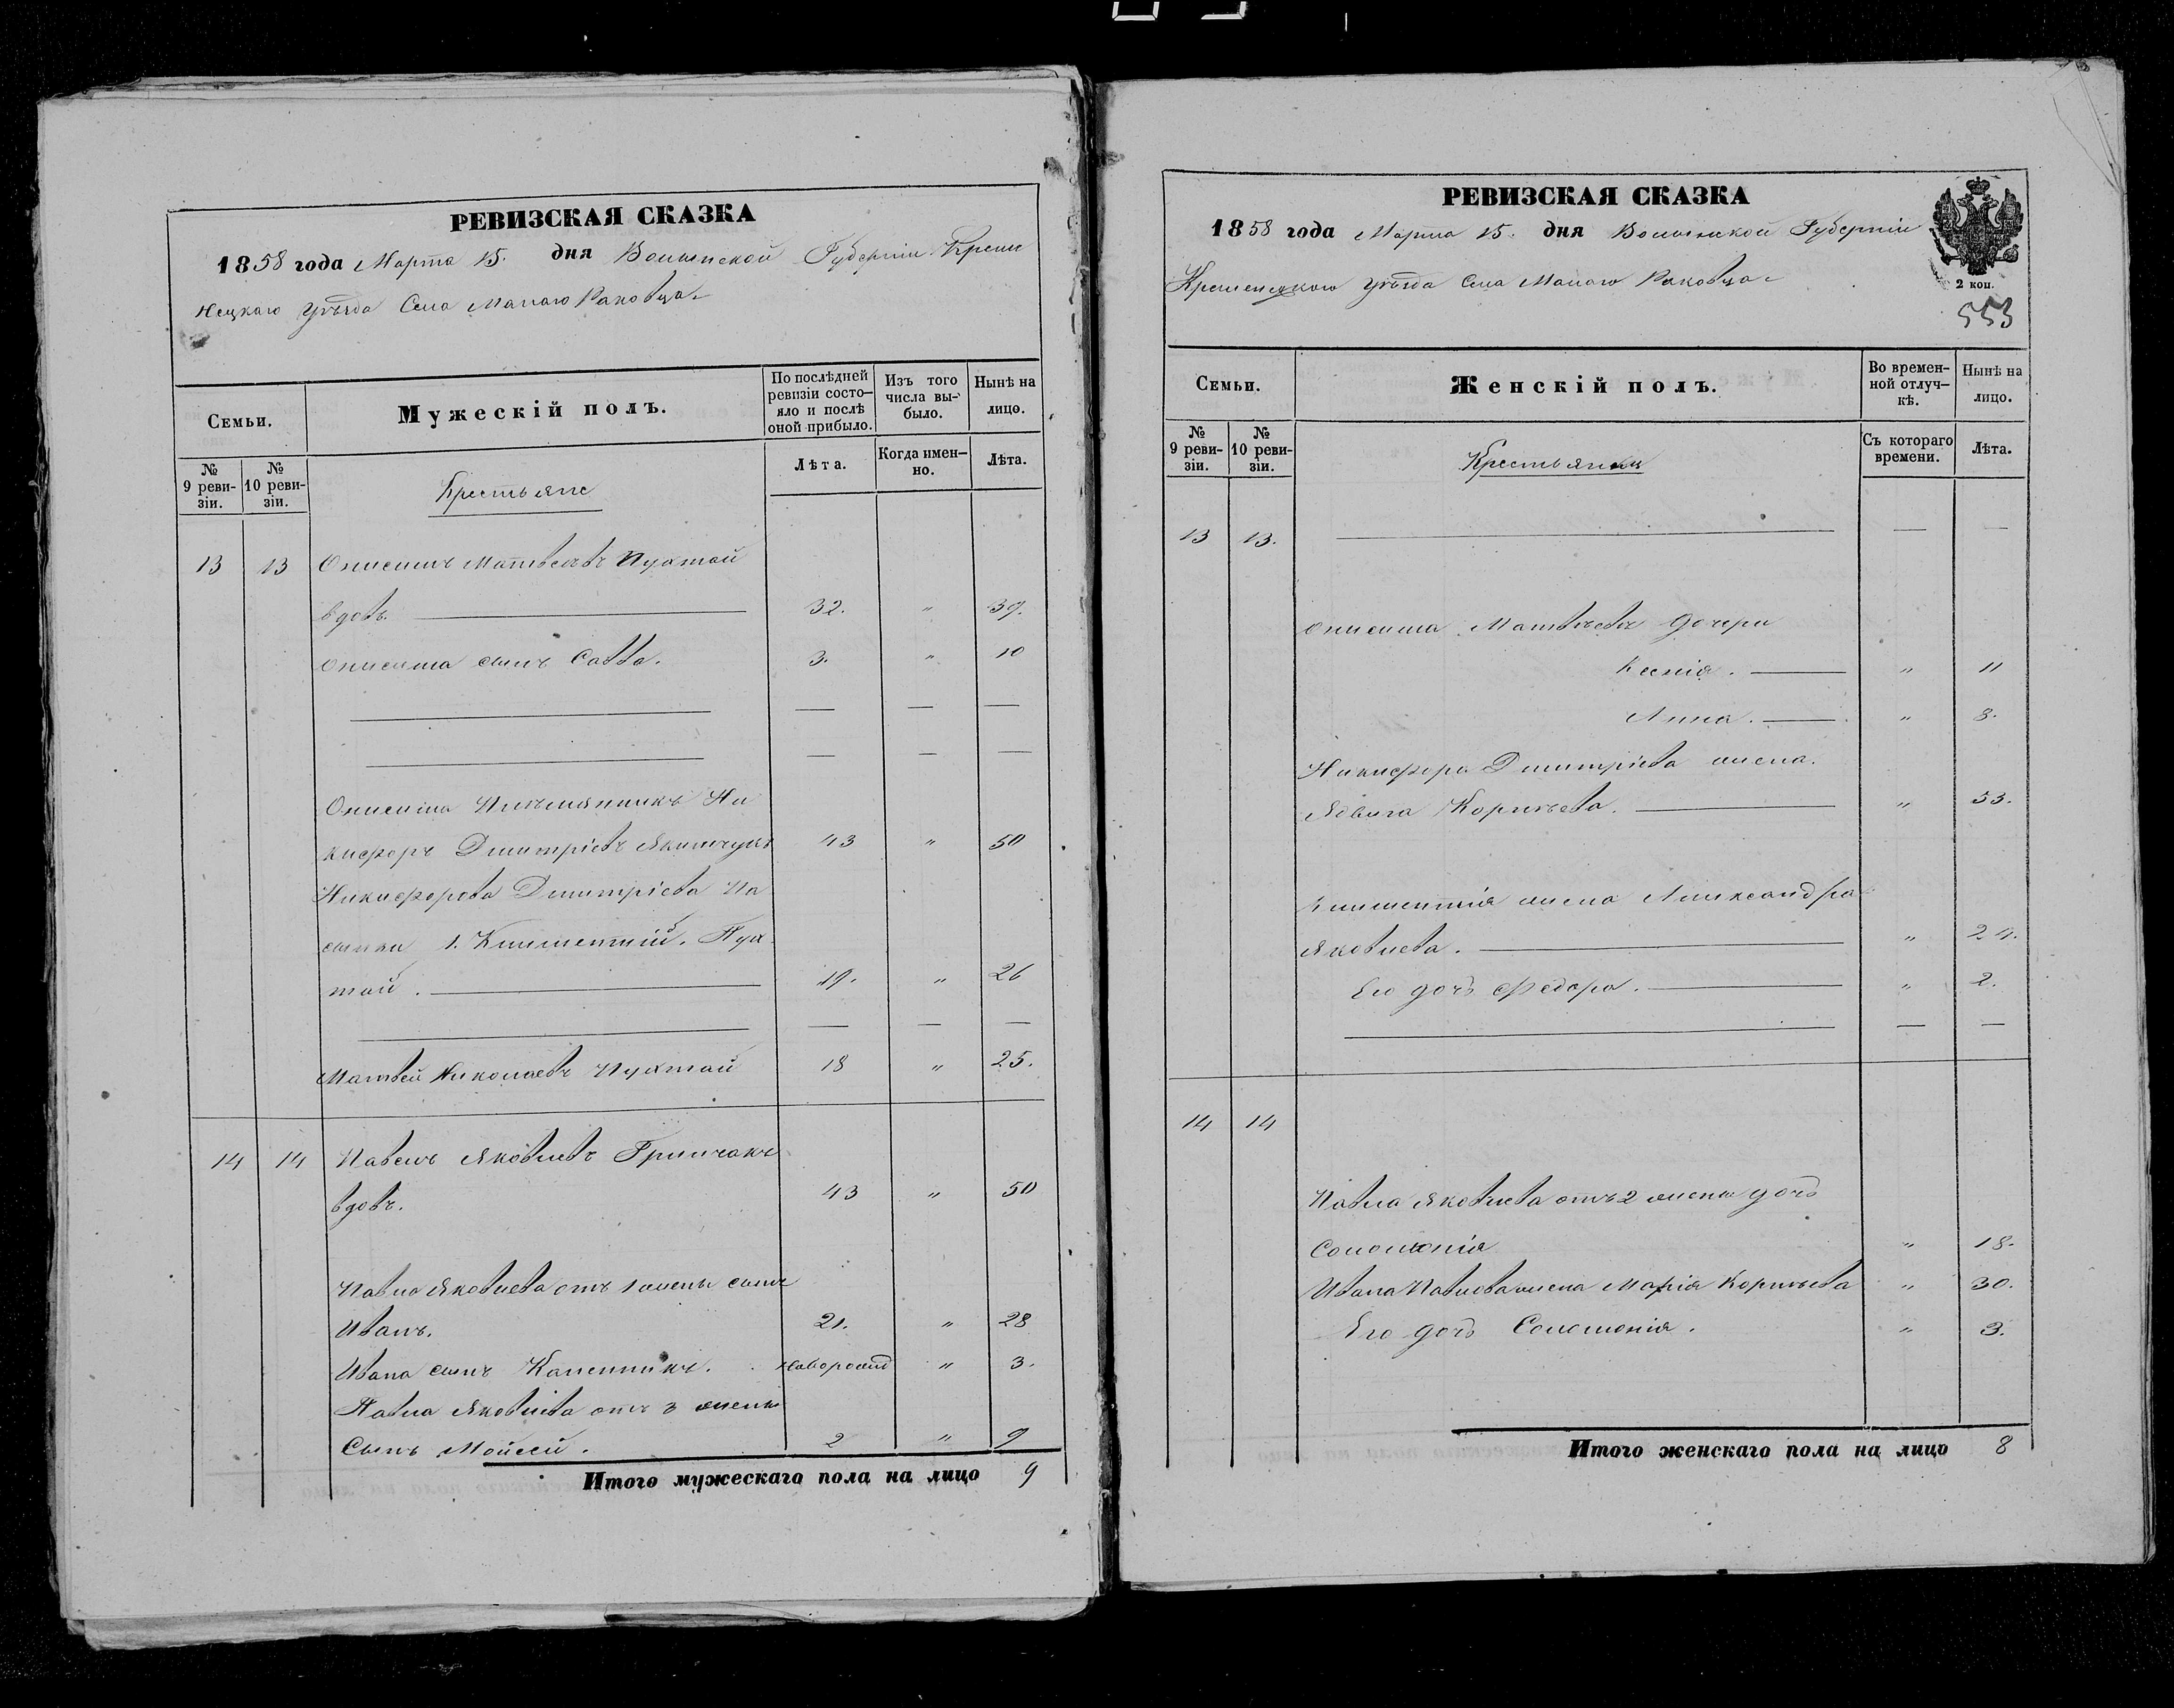 РЕВИЗСКАЯ СКАЗКА
1858 года Марта 15. дня Волынской Губерніи Креме
нецкаго Уѣзда Села Малаго Раковца
Семьи.
Мужескій полъ.
По послѣдней ревизіи состо-
яло и послѣ
оной прибыло.
Изъ того
числа вы-
было.
Нынѣ на
лицо.
№
9 реви-
зіи.
№
10 реви-
зіи.
Крестьяне
Лѣта.
Когда имен-
но.
Лѣта.
13 13 Онисимъ Матвеевъ Пухтай
вдовъ. 32. " 39.
Онисима сынъ Савва. 3. " 10
Онисима Племянникъ Ни
кифоръ Дмитріевъ Якимчукъ 43 " 50
Никифорова Дмитріева Па
сынки 1. Климентій. Пух
тай. 19. " 26
Матвей Николаевъ Пухтай 18 " 25.
14 14 Павелъ Яковлевъ Гринчакъ
вдовъ. 43 " 50
Павла Яковлева отъ 1 жены сынъ
Иванъ. 21. " 28
Ивана сынъ Калинникъ. новорожд " 3.
Павла Яковлева отъ 3 жены
Сынъ Мойсей. 2 " 9
Итого мужескаго пола на лицо 9
РЕВИЗСКАЯ СКАЗКА
1858 года Марта 15. дня Волынской Губерніи
Кременецкаго Уѣзда Села Малаго Раковца
2 коп.
553
Семьи.
Женскій полъ.
Во времен-
ной отлуч-
кѣ.
Нынѣ на
лицо.
№
9 реви-
зіи.
№
10 реви-
зіи.
Крестьянки
Съ котораго
времени.
Лѣта.
13 13.
Онисима Матвѣевъ дочери
Ксенія. " 11
Анна. " 8.
Никифора Дмитріева жена.
Ядвига Корнѣева. " 53.
Климентія жена Александра
Яковлева. " 24.
Его дочь Федора. " 2.
14 14
Павла Яковлева отъ 2 жены дочь
Соломонія " 18.
Ивана Павлова жена Марія Корнѣева " 30.
Его дочь Соломонія. " 3.
Итого женскаго пола на лицо 8